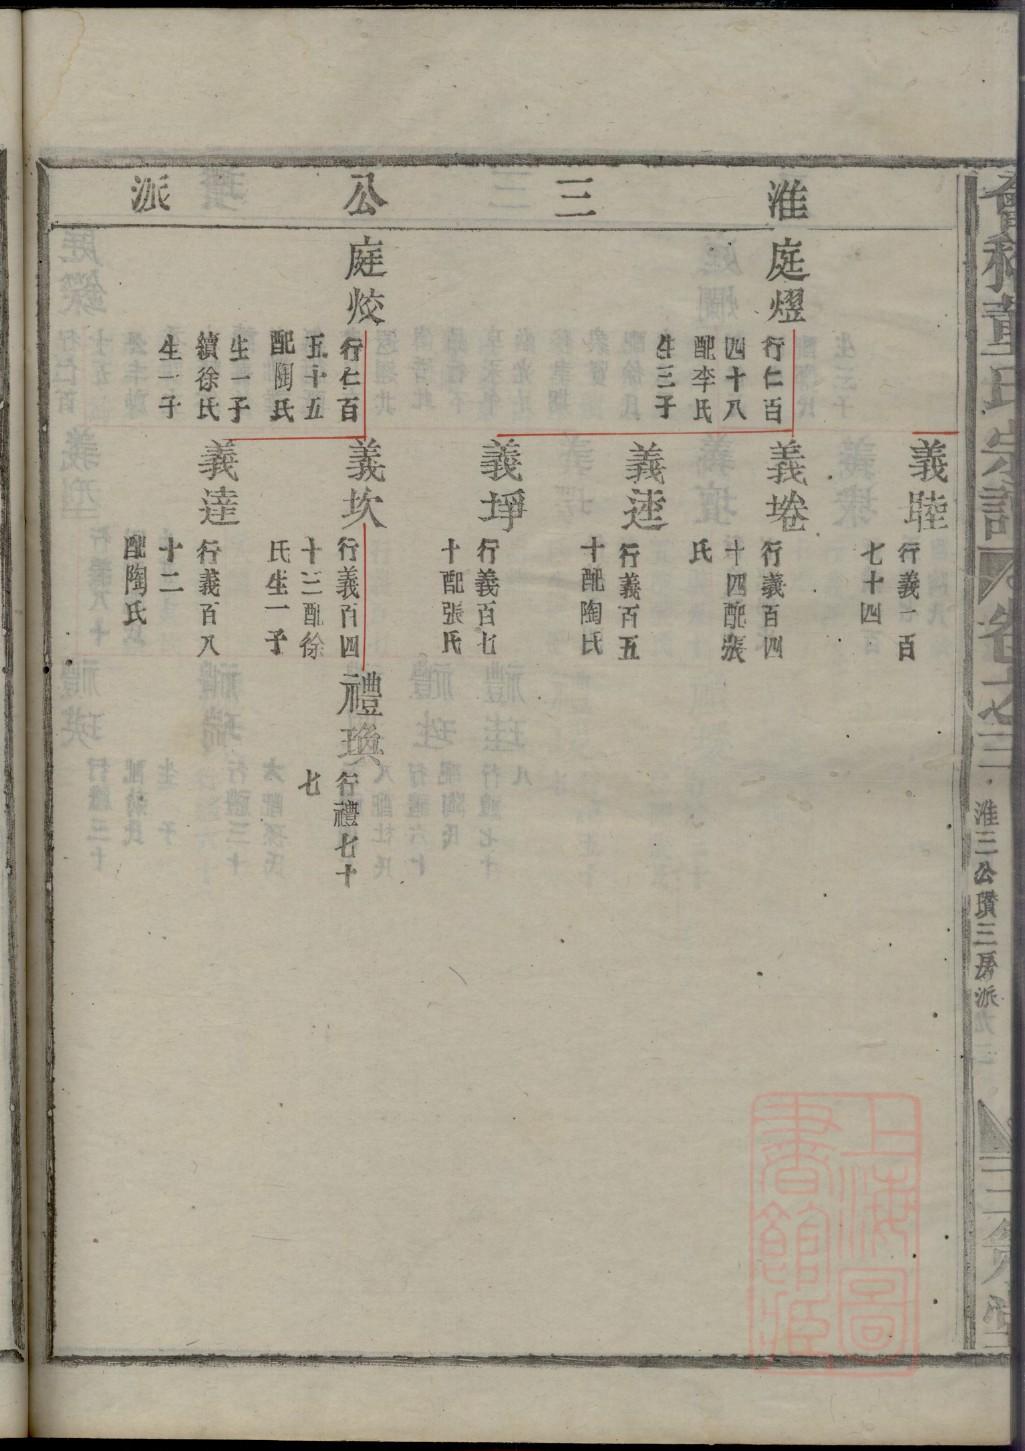 淮三公派
義踛
行義一百
七十四
庭熤
行仁百
四十八
配李氏
生三子
義埢
行義百四
十四配張
氏
義逨
行義百五
十配陶氏
義埩
行義百七
十配張氏
庭烄
行仁百
五十五
配陶氏
生一子
續徐氏
生一子
義坎
行義百四
十三配徐
氏生一子
禮瑍
行禮七十
七
義達
行義百八
十二
配陶氏
氏宗譜
卷之三
淮三公瓚三房派
上海圖書館藏